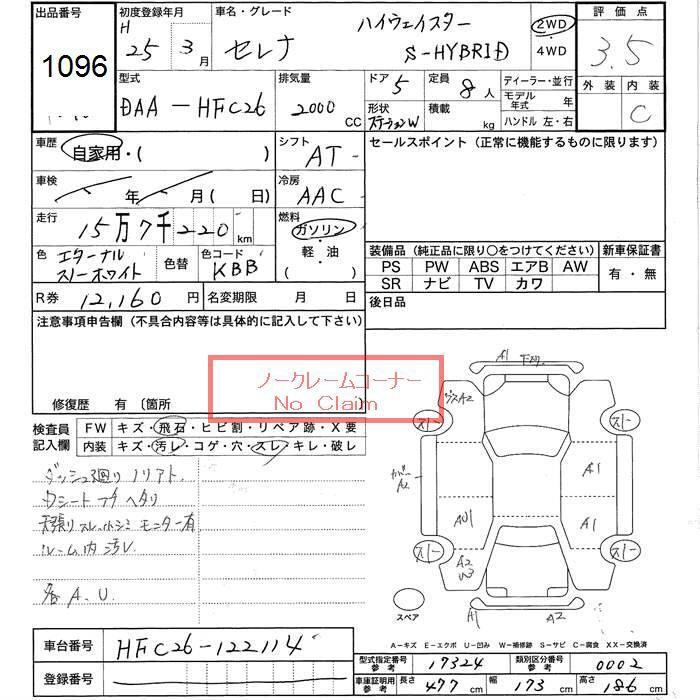 出品番号 初度登録年月 車名・グレード 評価点
1096 H 25年 3月 セレナ ハイウェイスター S-HYBRID 2WD・4WD 3.5
型式 排気量 ドア 5 定員 8人 ディーラー・並行 外装 内装
DAA-HFC26 2000 CC 形状 ステーションW 積載 kg モデル年式 年 ハンドル 左・右 C
車歴 自家用・( ) シフト AT セールスポイント (正常に機能するものに限ります)
車検 年 月 (日) 冷房 AAC
走行 15万7千220km 燃料 ガソリン・軽・油 ( )
色 エターナルスノーホワイト 色替 色コード KBB
装備品 (純正品に限り○をつけてください) 新車保証書
PS PW ABS エアB AW 有・無
SR ナビ TV カワ
R券 12,160円 名変期限 月 日 後日品
注意事項申告欄 (不具合内容等は具体的に記入して下さい)
ノークレームコーナー
No Claim
修復歴 有 〔箇所 〕
検査員記入欄 FW キズ・飛石・ヒビ割・リペア跡・X要
内装 キズ・汚レ・コゲ・穴・スレ・キレ・破レ
ダッシュ廻りノリアト
Dシートフチヘタリ
天張りスレ、トシミ モニター有
ルーム内汚レ
各A.U.
A1 下スリ
A2
スリー スリー
A2 A1
AU1 A1
スリー スリー
A2
W3
スペア A1 A2
A-キズ E-エクボ U-凹み W-補修跡 S-サビ C-腐食 XX-交換済
車台番号 HFC26-122114
型式指定番号 参考 17324 類別区分番号 参考 0002
登録番号 車庫証明用 参考 長さ 477cm 幅 173cm 高さ 186cm